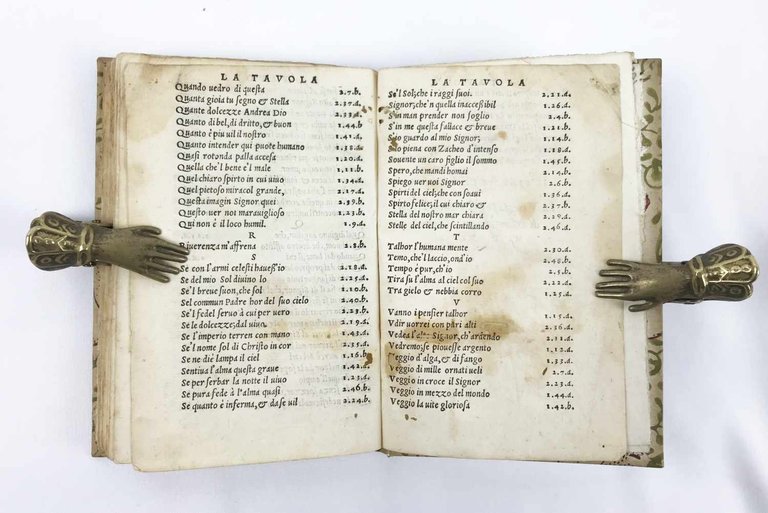 LA TAVOLA
Quando uedro di questa 2.7.b.
Quanta gioia tu segno & Stella 2.37.d.
Quante dolcezze Andrea Dio 2.33.d.
Quanto di bel, di dritto, & buon 1.44.b
Quanto è piu uil il nostro 1.41.d.
Quanto intender qui puote humano 1.38.d.
Quasi rotonda palla accesa 1.20.d.
Quella che'l bene e'l male 1.11.b.
Quel chiaro spirto in cui uiuo 1.34.d.
Quel pietoso miracol grande, 2.17.b.
Questa imagin Signor quei 2.39.b.
Questo uer noi marauiglioso 1.23.b.
Qui non è il loco humil. 1.9.d.
R
Riuerenza m'affrena 2.8.b.
S
Se con l'armi celesti hauess'io 2.18.d.
Se del mio Sol diuino lo 2.25.d.
Se'l breue suon, che sol 1.10.b.
Sel commun Padre hor del suo cielo 2.40.b.
Se'l fedel seruo à cui per uero 2.22.b.
Se le dolcezze, dal uiuo 2.19.d.
Se l'imperio terren con mano 1.43.d.
Se'l nome sol di Christo in cor 2.35.d.
Se ne diè lampa il ciel 1.16.b.
Sentiua l'alma questa graue 1.42.d.
Se per serbar la notte il uiuo 1.23.d.
Se pura fede à l'alma quasi 2.46.b.
Se quanto è inferma, & da se uil 2.24.b.
LA TAVOLA
Se'l Sol, che i raggi suoi. 2.21.d.
Signor, che'n quella inaccessibil 1.26.d.
S'in man prender non soglio 2.4.b.
S'in me questa fallace & breue 1.21.b.
S'io guardo al mio Signor, 1.14.b.
S'io piena con Zacheo d'intenso 1.18.d.
Souente un caro figlio il sommo 1.45.b.
Spero, che mandi homai 2.14.b.
Spiego uer uoi Signor 2.6.b.
Spirti del ciel, che con soaui 1.36.d.
Spirto felice, il cui chiaro & 1.37.b.
Stella del nostro mar chiara 2.19.d.
Stelle del ciel, che scintillando 2.46.d.
T
Talhor l'humana mente 2.30.d.
Temo, che'l laccio, ond'io 2.48.b.
Tempo è pur, ch'io 2.5.b.
Tira su l'alma al ciel col suo 2.22.d.
Tra gielo & nebbia corro 1.25.d.
V
Vanno i pensier talhor 1.15.d.
Vdir uorrei con puri alti 2.36.d.
Vedea l'alto Signor, ch'ardendo 2.31.d.
Vedremo, se piouesse argento 1.13.d.
Veggio d'alga, & di fango 1.33.d.
Veggio di mille ornati ueli 2.7.d.
Veggio in croce il Signor 2.23.d.
Veggio in mezzo del mondo 1.44.d.
Veggio la uite gloriosa 1.42.b.